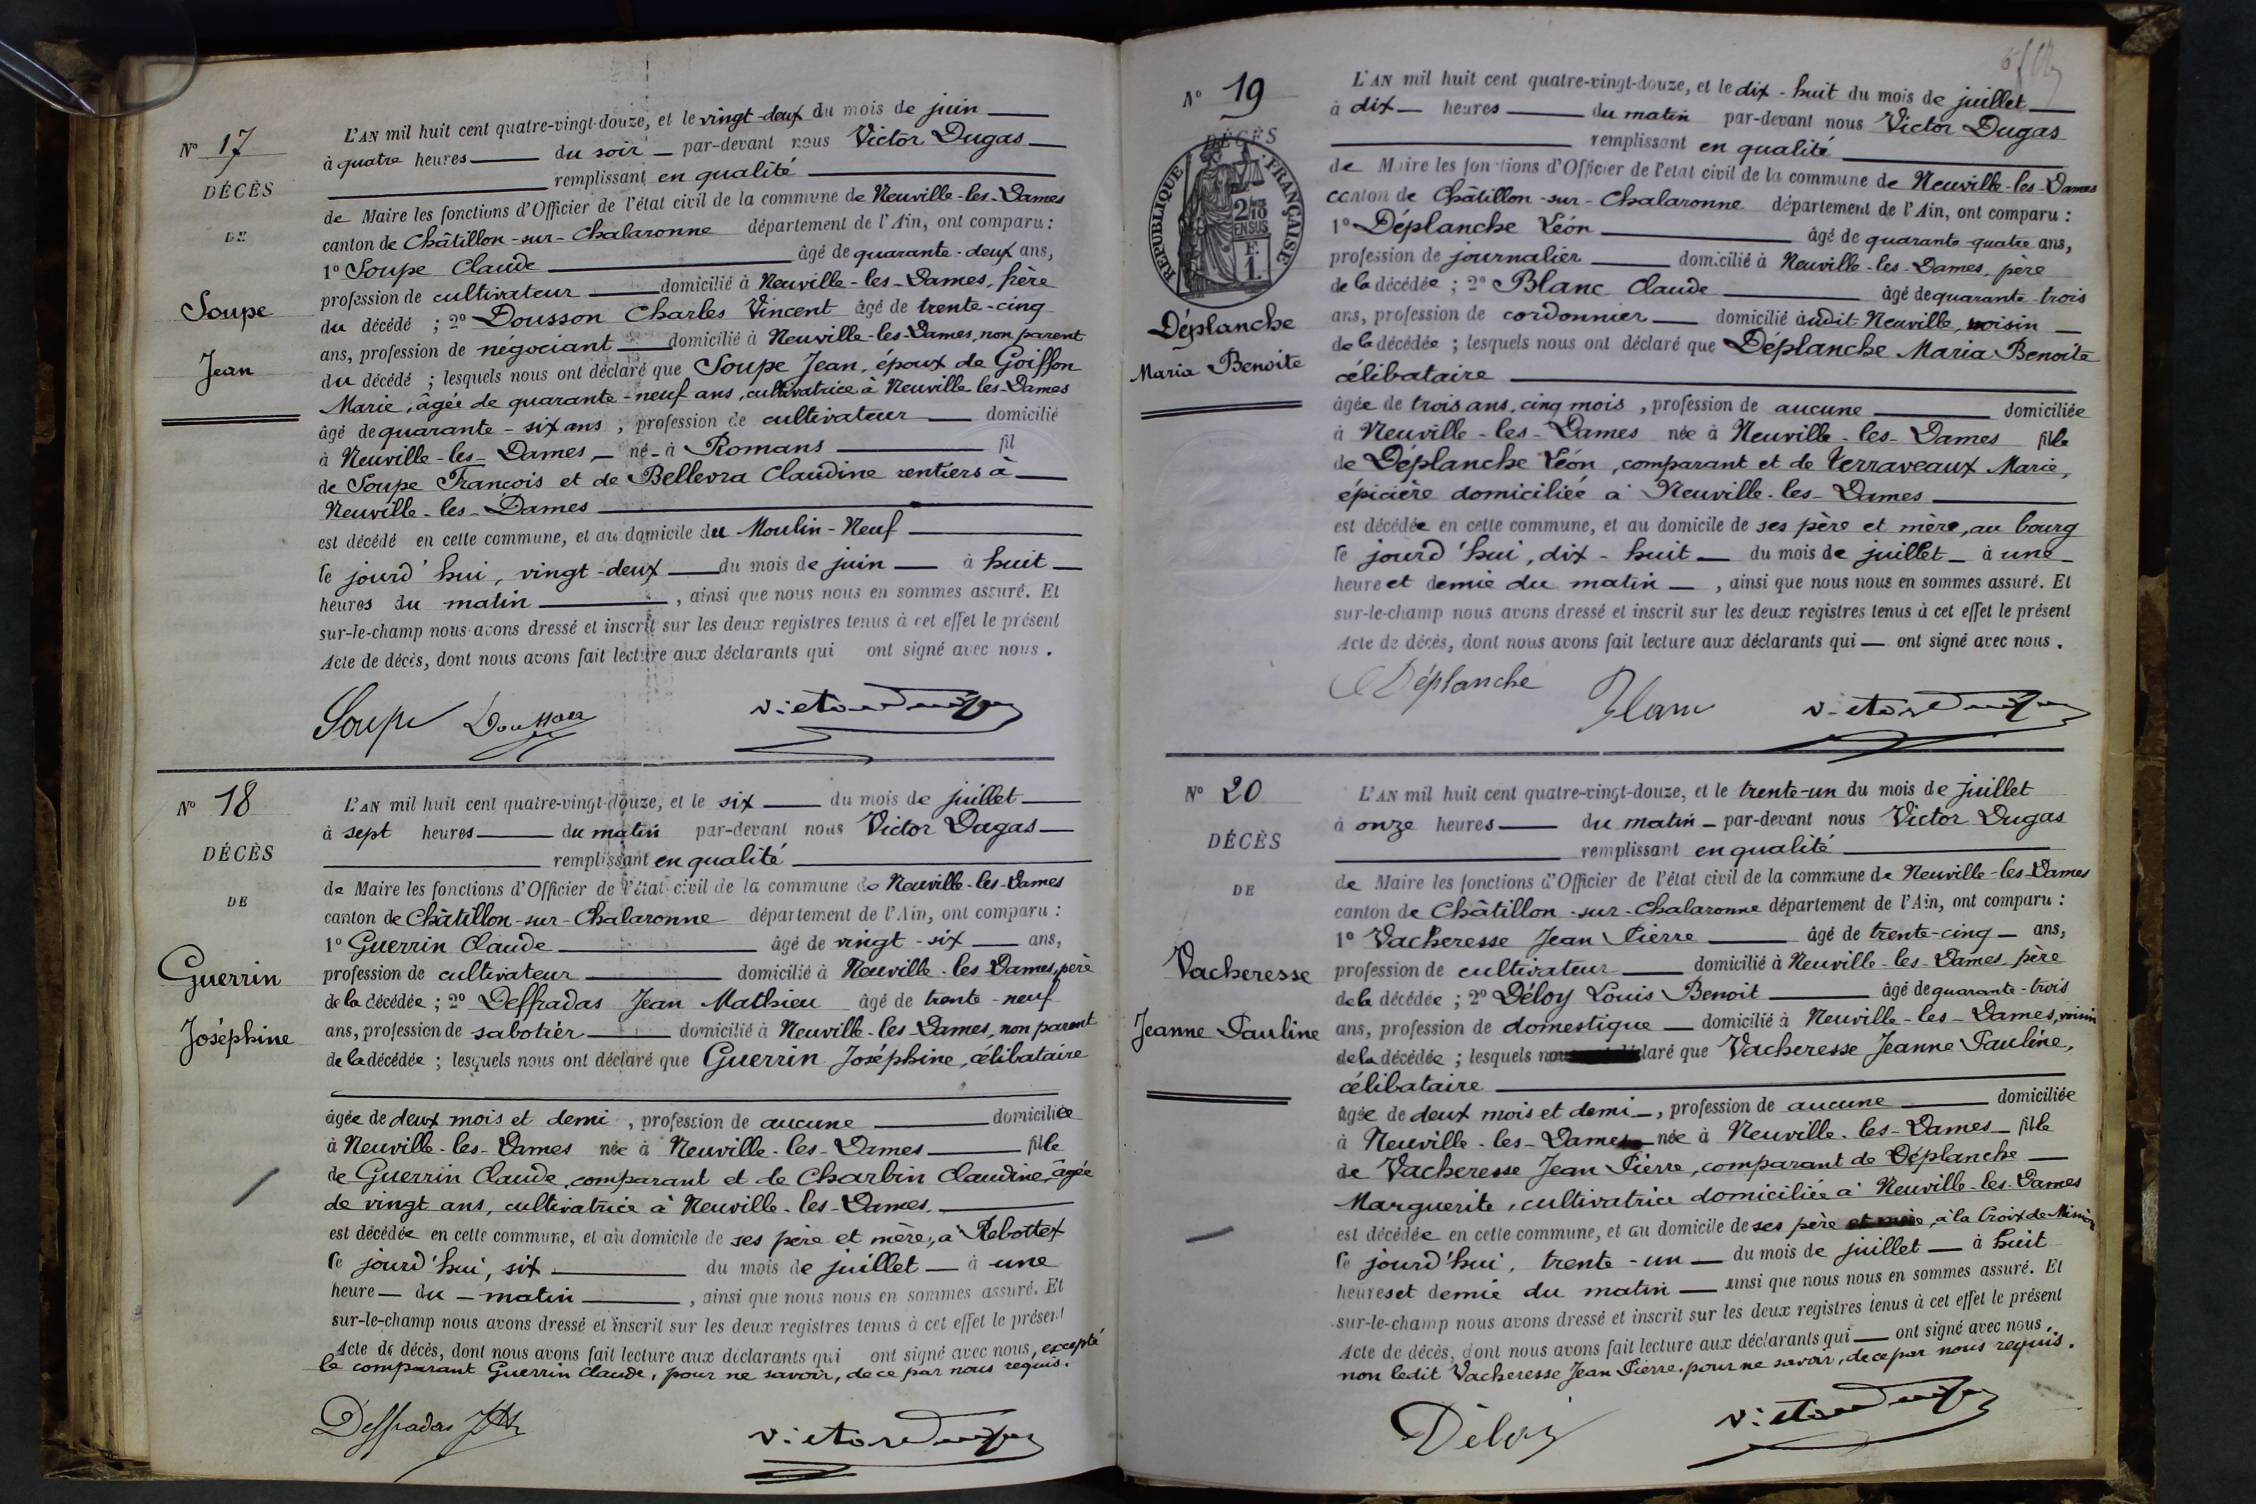 N° 17
DÉCÈS
DE
Soupe
Jean
L'AN mil huit cent quatre-vingt-douze, et le vingt-deux du mois de juin
à quatre heures du soir par-devant nous Victor Dugas
remplissant en qualité
de Maire les fonctions d'Officier de l'état civil de la commune de Neuville-les-Dames
canton de Châtillon-sur-Chalaronne département de l'Ain, ont comparu :
1° Soupe Claude âgé de quarante-deux ans,
profession de cultivateur domicilié à Neuville-les-Dames, frère
du décédé ; 2° Dousson Charles Vincent âgé de trente-cinq
ans, profession de négociant domicilié à Neuville-les-Dames, non parent
du décédé ; lesquels nous ont déclaré que Soupe Jean, époux de Goiffon
Marie, âgée de quarante-neuf ans, cultivatrice à Neuville-les-Dames
âgé de quarante-six ans, profession de cultivateur domicilié
à Neuville-les-Dames, né à Romans fil
de Soupe François et de Bellevra Claudine rentiers à
Neuville-les-Dames
est décédé en cette commune, et au domicile du Moulin-Neuf
le jourd'hui, vingt-deux du mois de juin à huit
heures du matin, ainsi que nous nous en sommes assuré. Et
sur-le-champ nous avons dressé et inscrit sur les deux registres tenus à cet effet le présent
Acte de décès, dont nous avons fait lecture aux déclarants qui ont signé avec nous.
Soupe Dousson Victor Dugas
N° 18
DÉCÈS
DE
Guerrin
Joséphine
L'AN mil huit cent quatre-vingt-douze, et le six du mois de juillet
à sept heures du matin par-devant nous Victor Dugas
remplissant en qualité
de Maire les fonctions d'Officier de l'état civil de la commune de Neuville-les-Dames
canton de Châtillon-sur-Chalaronne département de l'Ain, ont comparu :
1° Guerrin Claude âgé de vingt-six ans,
profession de cultivateur domicilié à Neuville-les-Dames, père
de la décédée ; 2° Deffradas Jean Mathieu âgé de trente-neuf
ans, profession de sabotier domicilié à Neuville-les-Dames, non parent
de la décédée ; lesquels nous ont déclaré que Guerrin Joséphine, célibataire
âgée de deux mois et demi, profession de aucune domiciliée
à Neuville-les-Dames née à Neuville-les-Dames fille
de Guerrin Claude, comparant et de Charbin Claudine, âgée
de vingt ans, cultivatrice à Neuville-les-Dames.
est décédée en cette commune, et au domicile de ses père et mère, à Rebottex
le jourd'hui, six du mois de juillet à une
heure du matin, ainsi que nous nous en sommes assuré. Et
sur-le-champ nous avons dressé et inscrit sur les deux registres tenus à cet effet le présent
Acte de décès, dont nous avons fait lecture aux déclarants qui ont signé avec nous, excepté
le comparant Guerrin Claude, pour ne savoir, de ce par nous requis.
Deffradas Victor Dugas
N° 19
DÉCÈS
RÉPUBLIQUE FRANÇAISE
2/10 EN SUS
F.
1.
Déplanche
Maria Benoite
L'AN mil huit cent quatre-vingt-douze, et le dix-huit du mois de juillet
à dix heures du matin par-devant nous Victor Dugas
remplissant en qualité
de Maire les fonctions d'Officier de l'état civil de la commune de Neuville-les-Dames
canton de Châtillon-sur-Chalaronne département de l'Ain, ont comparu :
1° Déplanche Léon âgé de quarante-quatre ans,
profession de journalier domicilié à Neuville-les-Dames, père
de la décédée ; 2° Blanc Claude âgé de quarante-trois
ans, profession de cordonnier domicilié àudit Neuville, voisin
de la décédée ; lesquels nous ont déclaré que Déplanche Maria Benoite
célibataire
âgée de trois ans, cinq mois, profession de aucune domiciliée
à Neuville-les-Dames née à Neuville-les-Dames fille
de Déplanche Léon, comparant et de Verraveaux Marie,
épicière domiciliée à Neuville-les-Dames
est décédée en cette commune, et au domicile de ses père et mère, au bourg
le jourd'hui, dix-huit du mois de juillet à une
heure et demie du matin, ainsi que nous nous en sommes assuré. Et
sur-le-champ nous avons dressé et inscrit sur les deux registres tenus à cet effet le présent
Acte de décès, dont nous avons fait lecture aux déclarants qui ont signé avec nous.
Déplanche Blanc Victor Dugas
N° 20
DÉCÈS
DE
Vacheresse
Jeanne Pauline
L'AN mil huit cent quatre-vingt-douze, et le trente-un du mois de juillet
à onze heures du matin par-devant nous Victor Dugas
remplissant en qualité
de Maire les fonctions d'Officier de l'état civil de la commune de Neuville-les-Dames
canton de Châtillon-sur-Chalaronne département de l'Ain, ont comparu :
1° Vacheresse Jean Pierre âgé de trente-cinq ans,
profession de cultivateur domicilié à Neuville-les-Dames père
de la décédée ; 2° Déloy Louis Benoit âgé de quarante-trois
ans, profession de domestique domicilié à Neuville-les-Dames, voisin
de la décédée ; lesquels nous ont déclaré que Vacheresse Jeanne Pauline,
célibataire
âgée de deux mois et demi, profession de aucune domiciliée
à Neuville-les-Dames née à Neuville-les-Dames fille
de Vacheresse Jean Pierre, comparant de Déplanche
Marguerite, cultivatrice domiciliée à Neuville-les-Dames
est décédée en cette commune, et au domicile de ses père et mère, à la Croix de Mission
le jourd'hui, trente-un du mois de juillet à huit
heures et demie du matin ainsi que nous nous en sommes assuré. Et
sur-le-champ nous avons dressé et inscrit sur les deux registres tenus à cet effet le présent
Acte de décès, dont nous avons fait lecture aux déclarants qui ont signé avec nous,
non ledit Vacheresse Jean Pierre, pour ne savoir, de ce par nous requis.
Déloy Victor Dugas